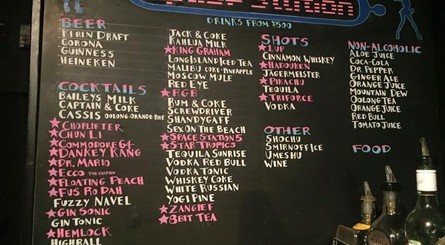 Station
DRINKS FROM ¥500
BEER
KIRIN DRAFT
CORONA
GUINNESS
HEINEKEN
COCKTAILS
BAILEYS MILK
CAPTAIN & COKE
CASSIS
★CHOPLIFTER
★CHUN LI
★COMMODORE 64
★DANKEY KANG
★DR. MARIO
★ECCO
★FLOATING PEACH
★FUS RO DAH
FUZZY NAVEL
★GIN SONIC
GIN TONIC
★HEMLOCK
HIGHBALL
JACK & COKE
KAHLUA MILK
★KING GRAHAM
LONG ISLAND ICED TEA
MALIBU COKE-PINEAPPLE
MOSCOW MULE
RED EYE
★RGB
RUM & COKE
SCREWDRIVER
SHANDYGAFF
SEX ON THE BEACH
★SPACE STATION 5
★STAR TROPICS
TEQUILA SUNRISE
VODKA RED BULL
VODKA TONIC
WHISKEY COKE
WHITE RUSSIAN
YOGI PINE
★ZANGIEF
★8BIT TEA
SHOTS
★1UP
CINNAMON WHISKEY
★HADOUKEN
JAGERMEISTER
★PIKACHU
TEQUILA
★TRIFORCE
VODKA
OTHER
SHOCHU
SMIRNOFF ICE
UMESHU
WINE
NON-ALCOHOLIC
ALOE JUICE
COCA-COLA
DR PEPPER
GINGER ALE
ORANGE JUICE
MOUNTAIN DEW
OOLONG TEA
ORANGE JUICE
RED BULL
TOMATO JUICE
FOOD